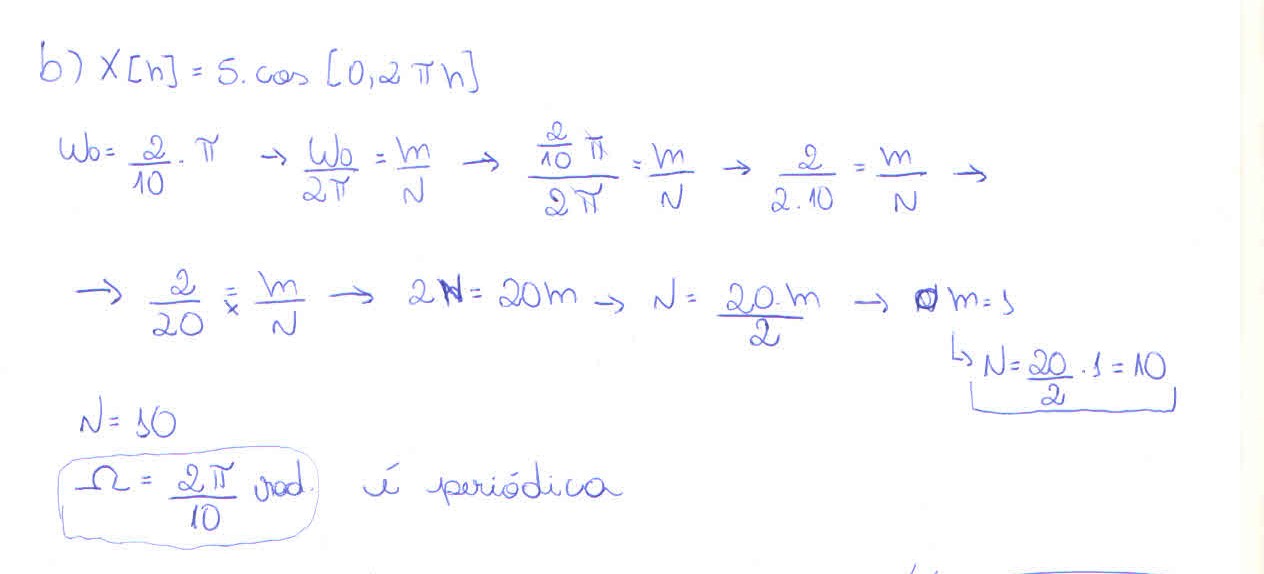 b) x[n] = 5.cos [0,2πn]
W0 = 2/10 . π → W0/2π = m/N → (2/10 π)/2π = m/N → 2/2.10 = m/N →
→ 2/20 = m/N → 2N = 20m → N = 20.m/2 → m = 1
↳ N = 20/2 . 1 = 10
N = 10
Ω = 2π/10 rad. é periódica